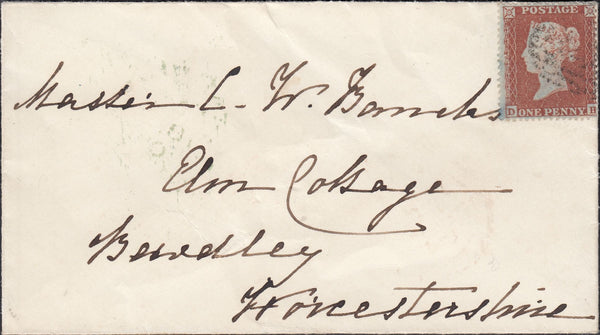 POSTAGE
D ONE PENNY
Master C. W.
Elm Cottage
Bewdley
Worcestershire